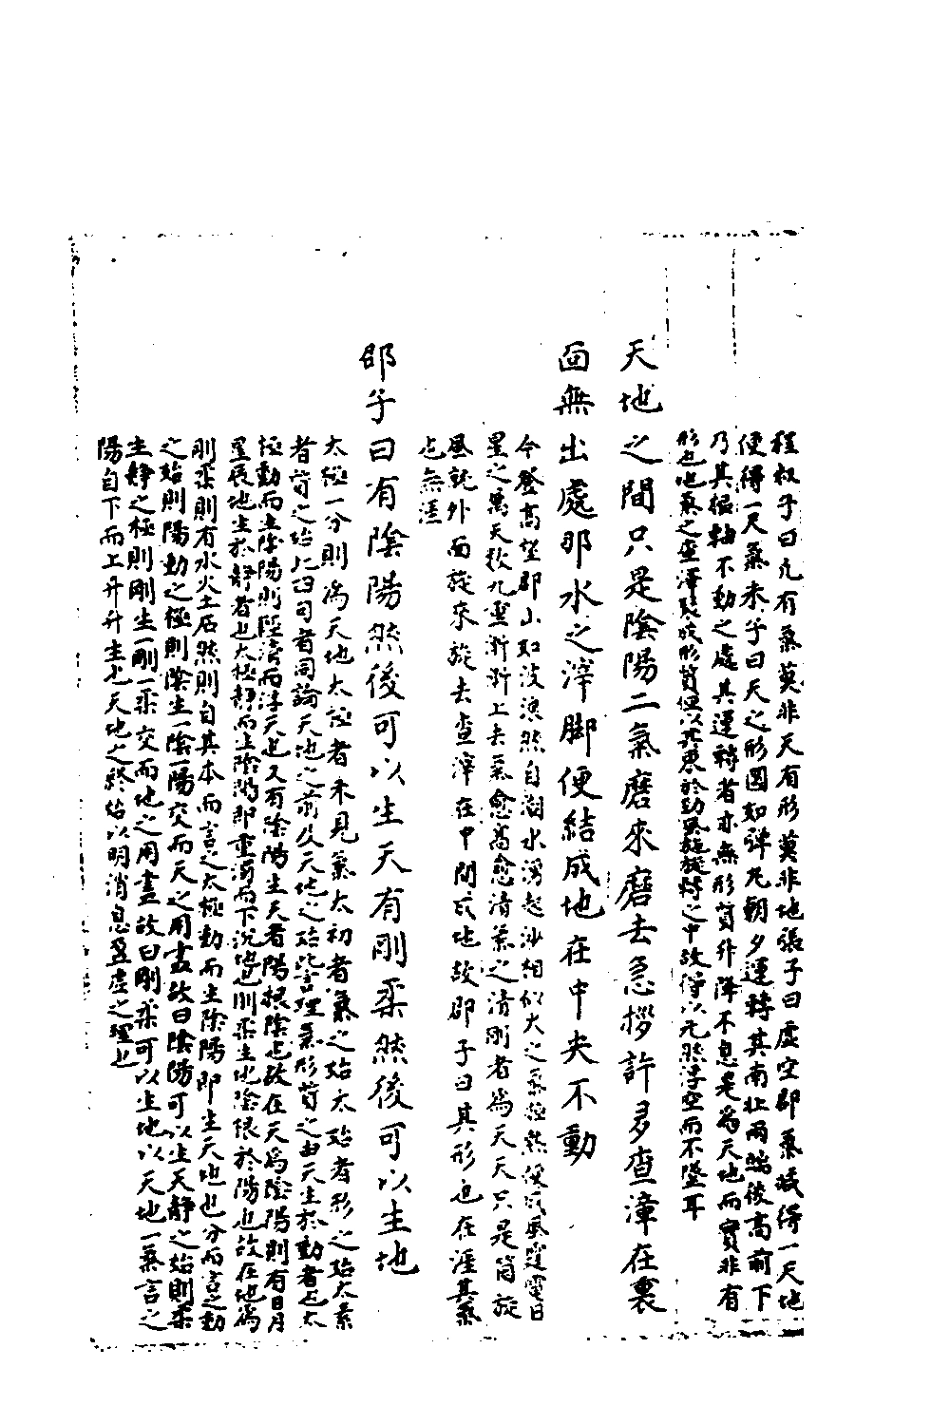 程叔子曰凡有氣莫非天有形莫非地張子曰虛空卽氣減得一尺地
便得一尺氣朱子曰天之形圓如彈丸朝夕運轉其南北兩端後高前下
乃其樞軸不動之處其運轉者亦無形質升降不息是爲天地而實非有
形也地氣之查滓聚成形質但以其束於勁風旋轉之中故得以兀然浮空而不墜耳
天地之間只是陰陽二氣磨來磨去急拶許多查滓在裏
面無出處那水之滓脚便結成地在中夬不動
今登高望郡山如波浪然自湖水湧起沙相似大之氣極熱便成風霆電日
星之萬天秋九重漸漸上去氣愈高愈清氣之清剛者爲天天只是箇旋
風乾外面旋來旋去查滓在中間成地故邵子曰其形也在涯其氣
也無涯
邵子曰有陰陽然後可以生天有剛柔然後可以生地
太極一分則爲天地太極者未見氣太初者氣之始太始者形之始太素
者質之始上四者同論天地之前及天地之始此言理氣形質之由天生於動者也太
極動而生陰陽則陞淸而浮天也又有陰陽生天者陽根陰也故在天爲陰陽則有日月
星辰地生於靜者也太極靜而生陰陽卽重濁而下沉地也則柔生也陰根於陽也故在地爲
剛柔則有水火土石然則自其本而言之太極動而生陰陽卽生天地也分而言之動
之始則陽動之極則陰生一陰一陽交而天之用盡故曰陰陽可以生天靜之始則柔
生靜之極則剛生一剛一柔交而地之用盡故曰剛柔可以生地以天地一氣言之
陽自下而上升升生也天地之終始以明消息盈虛之理也